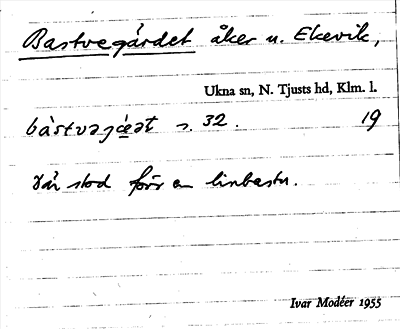 Bastvegärdet åker u. Ekevik,
Ukna sn, N. Tjusts hd, Klm. l.
s. 32. 19
Där stod förr en linbastu.
Ivar Modéer 1955